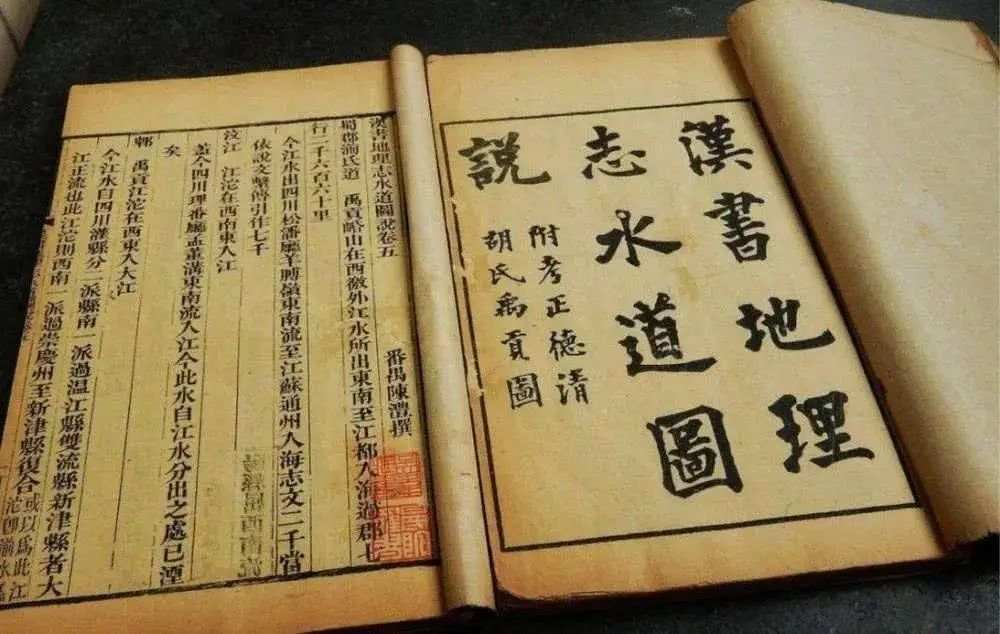 漢書地理
志水道圖
說
附考正德清
胡氏禹貢圖
漢書地理志水道圖說卷五
番禺陳澧撰
蜀郡湔氐道　禹貢㟭山在西徼外江水所出東南至江都入海過郡七
行二千六百六十里
今江水出四川松潘廳羊膊嶺東南流至江蘇通州入海志文二千當
依說文繫傳引作七千
汶江　江沱在西南東入江
蓋今四川理番廳孟董溝東南流入江今此水自江水分出之處已湮
矣
郫　禹貢江沱在西東入大江
今江水自四川灌縣分二派縣南一派過温江縣雙流縣新津縣者大
江正流也此江沱則西南一派過崇慶州至新津縣復合或以爲此江